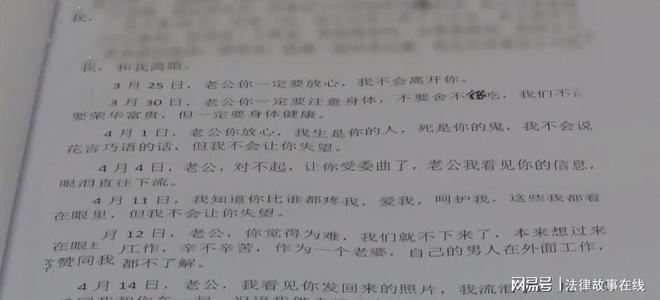 我,
我, 和我离婚。
3 月 25 日, 老公你一定要放心, 我不会离开你。
3 月 30 日, 老公你一定要注意身体, 不要舍不得吃, 我们不
要荣华富贵, 但一定要身体健康。
4 月 1 日, 老公你放心, 我生是你的人, 死是你的鬼, 我不会说
花言巧语的话, 但我不会让你失望。
4 月 4 日, 老公, 对不起, 让你受委曲了, 老公我看见你的信息,
眼泪直往下流。
4 月 11 日, 我知道你比谁都疼我, 爱我, 呵护我, 这些我都看
在眼里, 但我不会让你失望。
月 12 日, 老公, 你觉得为难, 我们就不下来了, 本来想过来
在眼 工作, 辛不辛苦, 作为一个老婆, 自己的男人在外面工作,
赞同我 都不了解。
4 月 14 日, 老公, 我看见你发回来的照片, 我流
网易号 | 法律故事在线